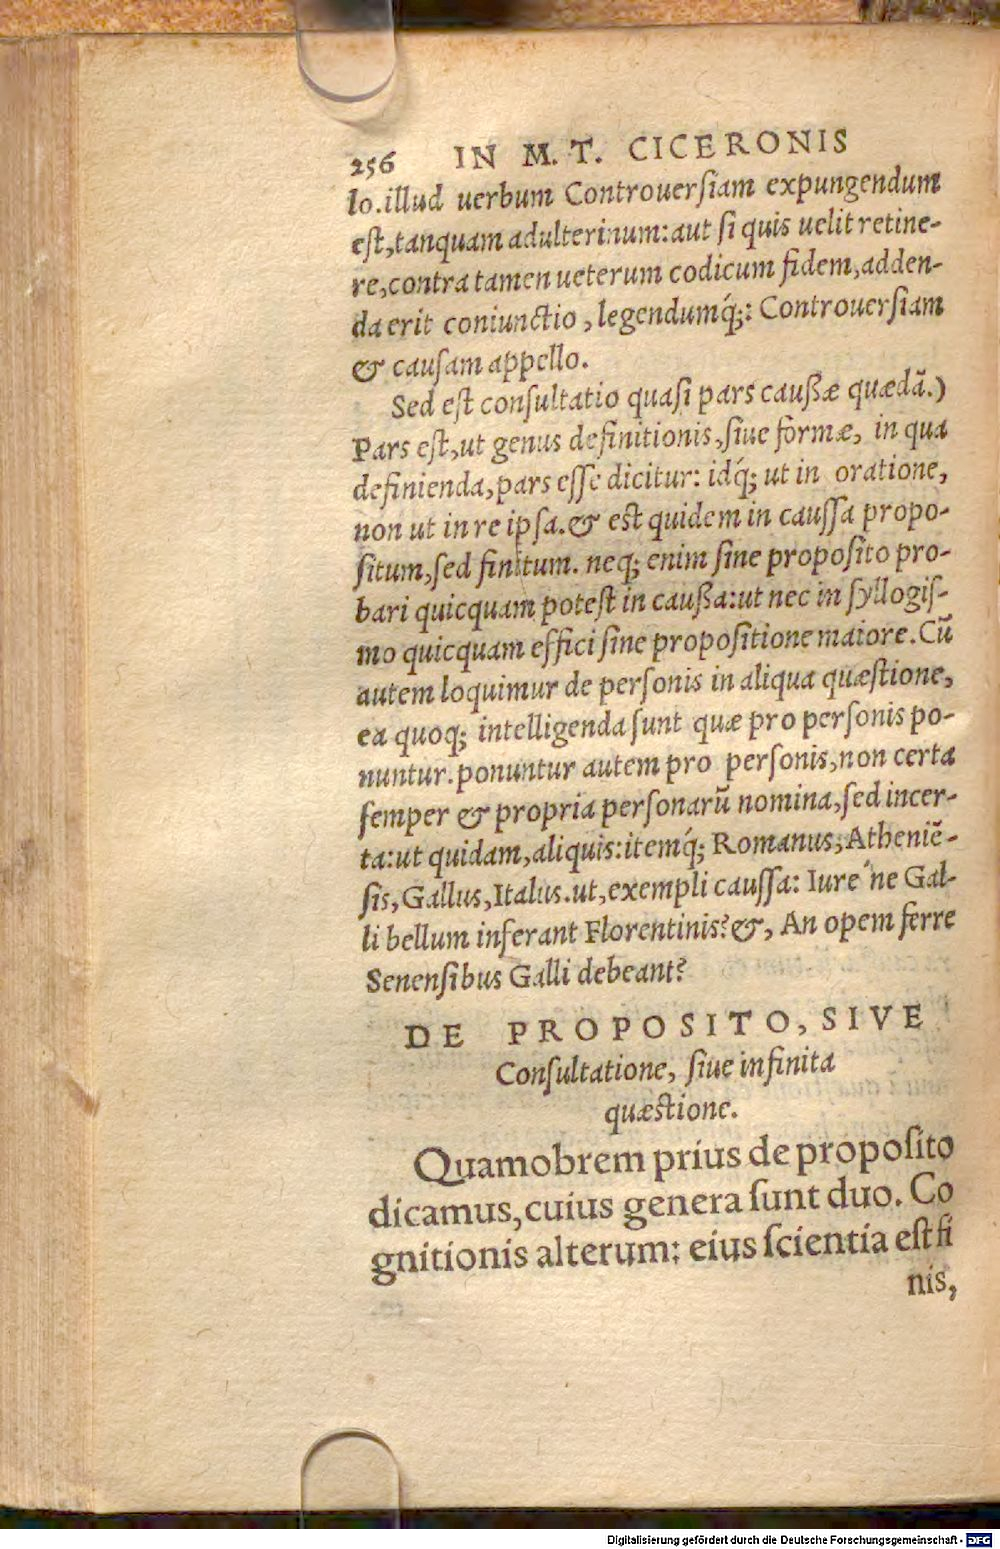 256 IN M. T. CICERONIS
lo. illud uerbum Controuerſiam expungendum
eſt, tanquam adulterinum: aut ſi quis uelit retine-
re, contra tamen ueterum codicum fidem, adden-
da erit coniunctio, legendumq́;: Controuerſiam
& cauſam appello.
Sed eſt conſultatio quaſi pars caußæ quædã.)
Pars eſt, ut genus definitionis, ſiue formæ, in qua
definienda, pars eſſe dicitur: idq́; ut in oratione,
non ut in re ipſa. & est quidem in cauſſa propo-
ſitum, ſed finitum. neq; enim ſine propoſito pro-
bari quicquam poteſt in caußa: ut nec in ſyllogiſ-
mo quicquam effici ſine propoſitione maiore. Cũ
autem loquimur de perſonis in aliqua quæſtione,
ea quoq; intelligenda ſunt quæ pro perſonis po-
nuntur. ponuntur autem pro perſonis, non certa
ſemper & propria perſonarũ nomina, ſed incer-
ta: ut quidam, aliquis: itemq́; Romanus, Atheniẽ-
ſis, Gallus, Italus. ut, exempli cauſſa: Iure ́ne Gal-
li bellum inferant Florentinis? &, An opem ferre
Senenſibus Galli debeant?
DE PROPOSITO, SIVE
Conſultatione, ſiue infinita
quæstione.
Quamobrem prius de propoſito
dicamus, cuius genera ſunt duo. Co
gnitionis alterum: eius ſcientia eſt fi
nis,
Digitalisierung gefördert durch die Deutsche Forschungsgemeinschaft - DFG